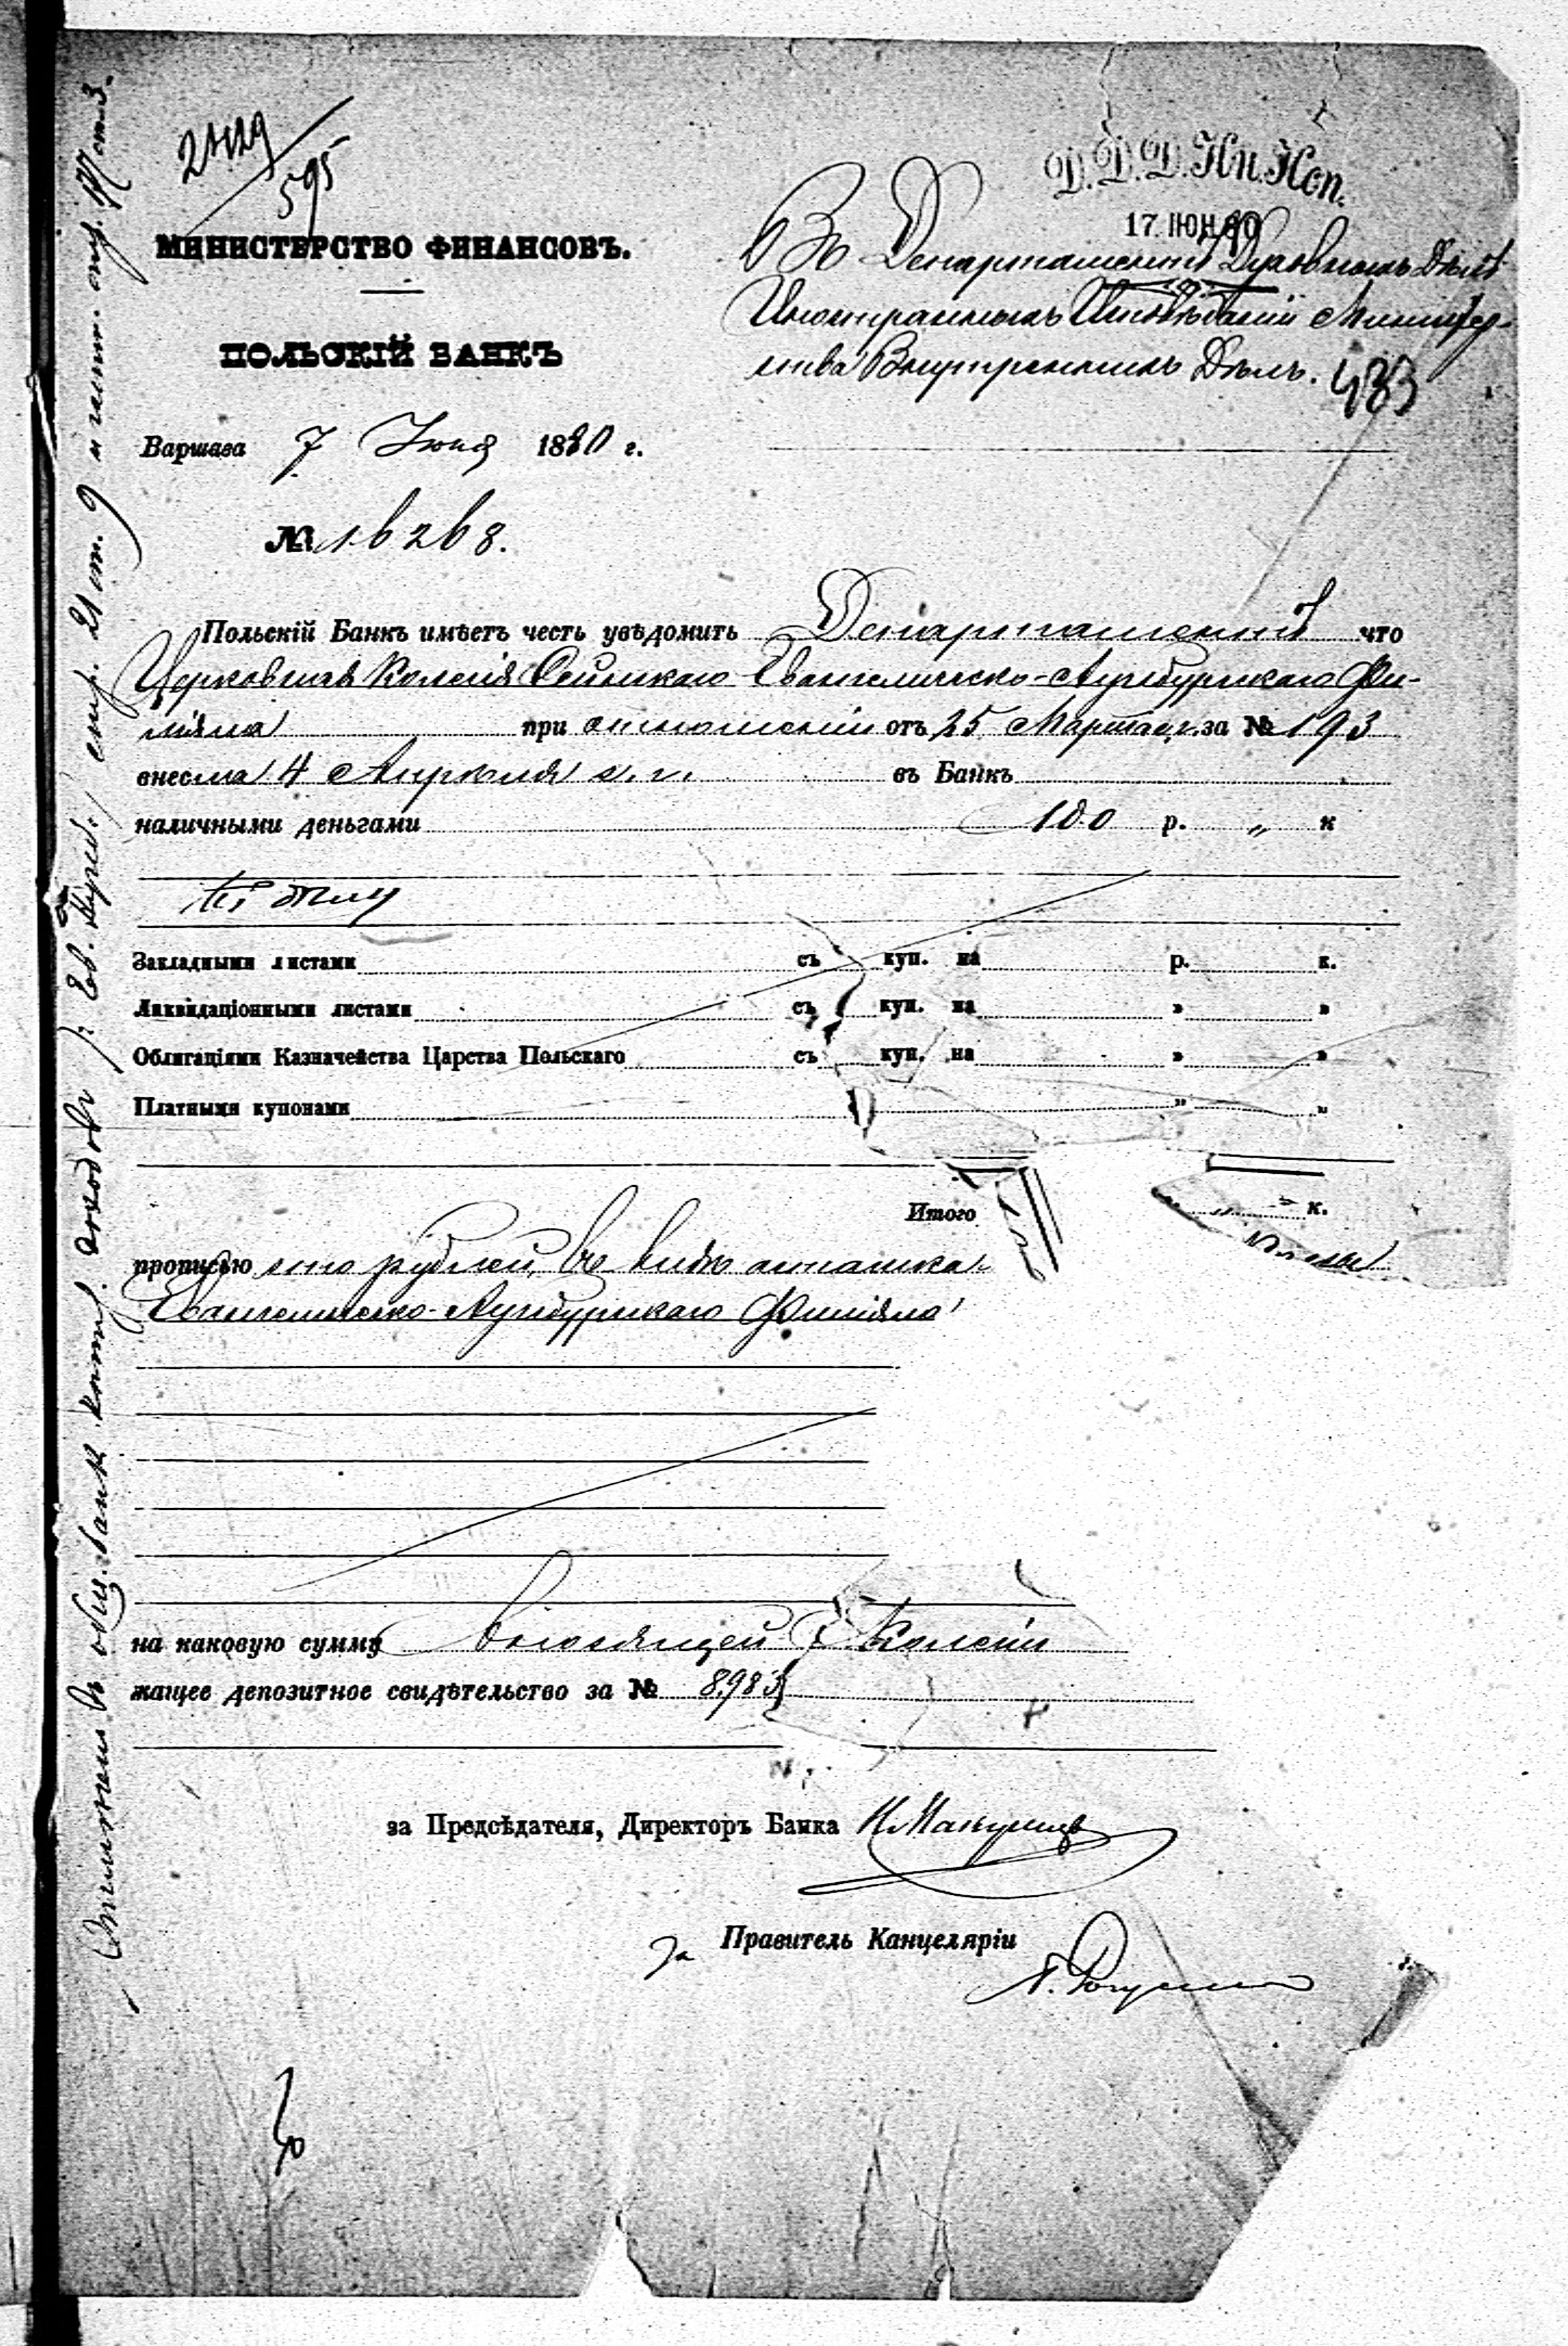 Д.Д.Д.Ин.Исп.
17 ІЮН 80
2429
595
МИНИСТЕРСТВО ФИНАНСОВЪ.
ПОЛЬСКІЙ БАНКЪ
Варшава 7 Іюня 1880 г.
№ 16268.
Въ Департаментъ Духовныхъ Дѣлъ
Иностранныхъ Исповѣданій Министер-
ства Внутреннихъ Дѣлъ.
433
Польскій Банкъ имѣетъ честь увѣдомить Департаментъ что
Церковная Колегія Сейнскаго Евангелическо-Аугсбургскаго Фи-
ліяла при отношеніи отъ 25 Марта с.г. за № 193
внесла 4 Апрѣля с. г. въ Банкъ
наличными деньгами 100 р. „ к
Закладными листами съ куп. на р. к.
Ликвидаціонными листами съ куп. на » »
Облигаціями Казначейства Царства Польскаго съ куп. на » »
Платными купонами „ „
Итого „ = к.
прописью сто рублей, въ видѣ
Евангелическо-Аугсбургскаго Филіяла
на каковую сумму вносящей Колегіи
жащее депозитное свидѣтельство за № 8983
за Предсѣдателя, Директоръ Банка
За Правитель Канцеляріи